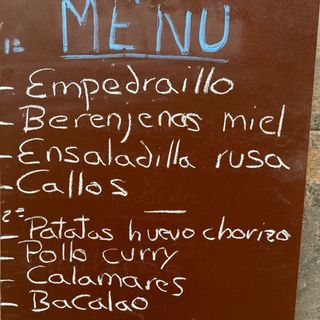 MENU
1º
- Empedraillo
- Berenjenas miel
- Ensaladilla rusa
- Callos
2º
- Patatas huevo chorizo
- Pollo curry
- Calamares
- Bacalao